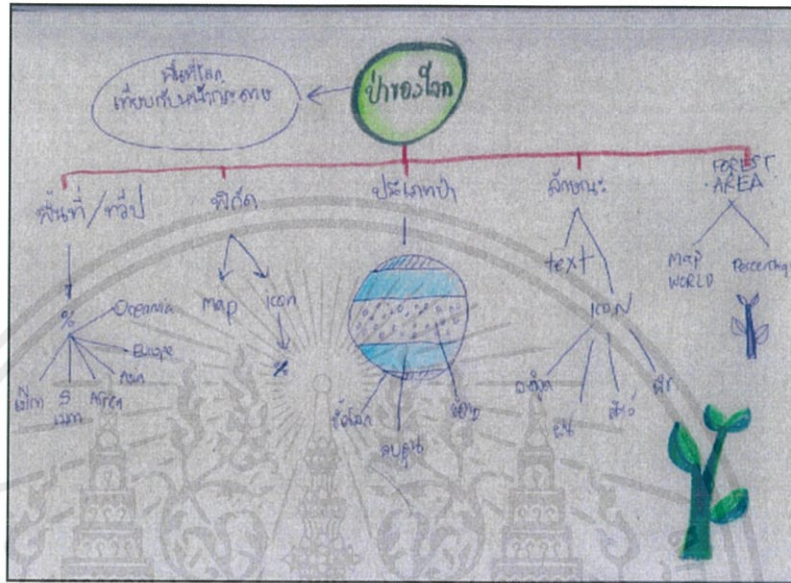 พื้นที่โลก
เทียบกับหน้ากระดาษ
ป่าของโลก
พื้นที่/ทวีป
พิกัด
ประเภทป่า
ลักษณะ
FOREST
AREA
%
Oceania
Europe
Asia
map
icon
%
ขั้วโลก
อบอุ่น
text
ICON
ฝน
สัตว์
MAP
WORLD
Percentage